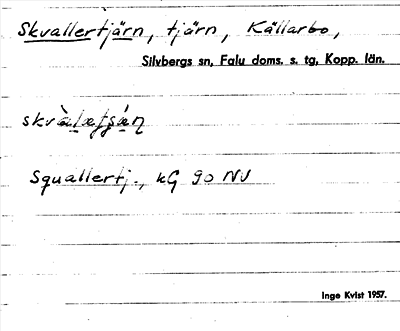 Skvallertjärn, tjärn, Källarbo,
Silvbergs sn, Falu doms. s. tg, Kopp. län.
Squallertj., kG 90 NV
Inge Kvist 1957.